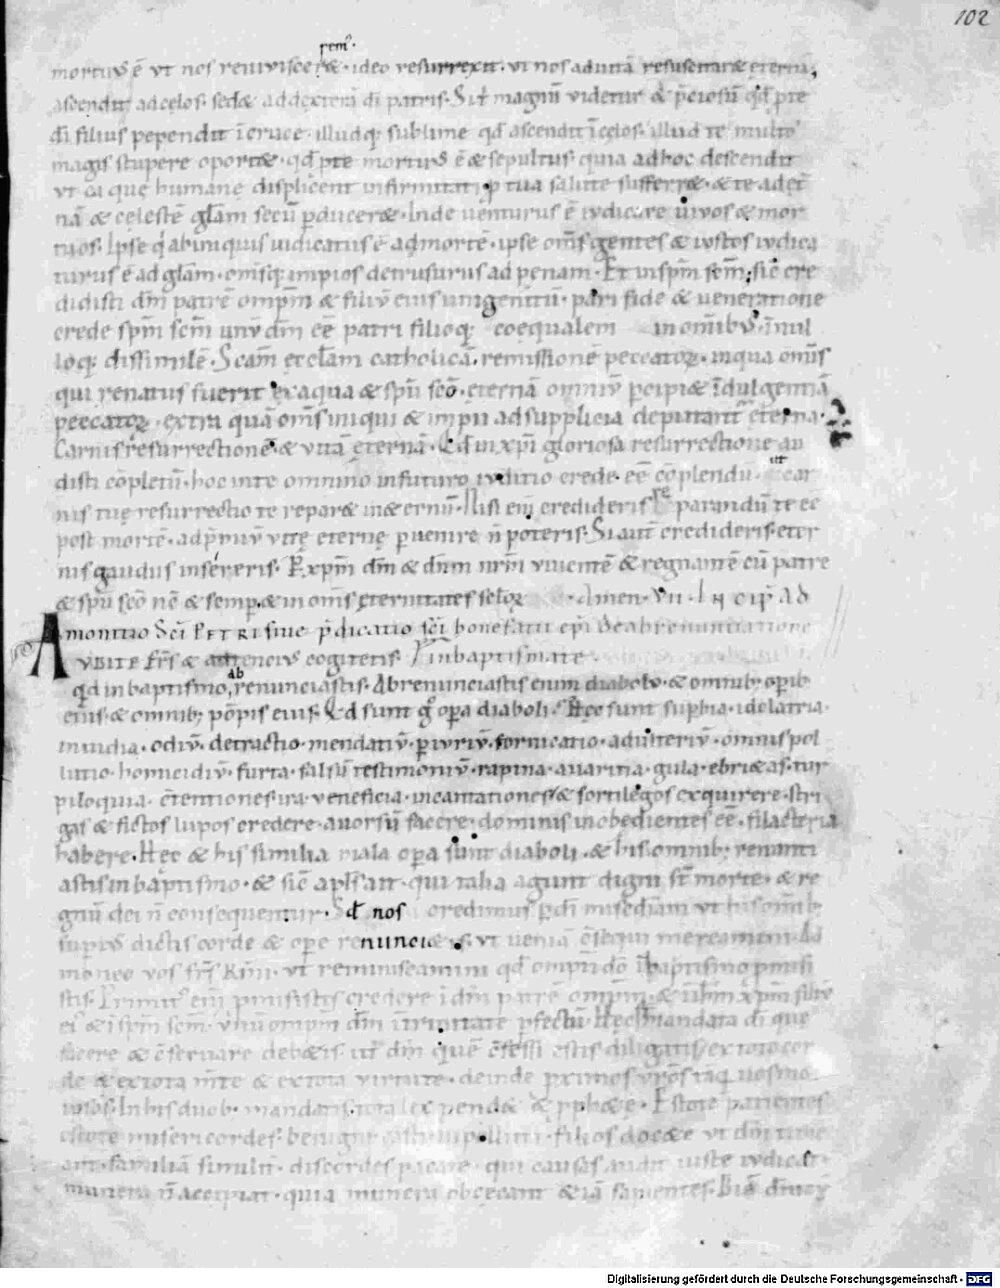 102
rem'
mortuus ē ut nos reuiuiscerꝫ · ideo resurrexit · ut nos ad uitā resuscitarꝫ eternā;
ascendit ad celos · sedꝫ ad dexterā di patris · Sit magnū uidetur & p̄ciosū qd pte
di filius pependit ī cruce · illudq; sublime qd ascendit ī celos · illud te multo
magis stupere oportꝫ · qd pte mortuus ē & sepultus · quia ad hoc descendit
ut ea que humane displicent infirmitati p tua salute sufferrꝫ · & te ad et̄
nā & celestē gl̄am secū pducerꝫ · Inde uenturus ē iudicare uiuos & mor
tuos · Ipse q ab iniquis iudicatus ē ad mortē · ipse om̄s gentes & iustos iudica
turus ē ad gl̄am · om̄sq; impios detrusurus ad penam · Et in sp̄m sc̄m; sic̄ cre
didisti dm̄ patrē omp̄m & filiū eius unigenitū · pari fide & ueneratione
crede sp̄m sc̄m unū dm̄ ēē patri filioq; coequalem in omīb; · ī nul
loq; dissimilē · Sc̄am eccl̄am catholicā · remissionē peccatoꝝ · in qua om̄s
qui renatus fuerit ex aqua & sp̄u sc̄o · eternā omniū pcipiꝫ īdulgentiā
peccatoꝝ · extra quā om̄s iniqui & impii ad supplicia deputant̄ eterna ·
Carnis resurrectionē · & uitā eternā · Qd in xp̄i gloriosa resurrectione au
disti cōpletū · hoc in te omnino in futuro iuditio crede · ēē cōplendū · ut car
nis tue resurrectio te reparꝫ in eternū · Nisi eni credideris reparandū te ēē
post mortē · ad p̄miū uite eterne puenire n̄ poteris · Si aut̄ credideris · eter
nis gaudiis insereris · P xp̄m dm̄ & dn̄m nrm̄ uiuentē & regnantē cū patre
& sp̄u sc̄o nc̄ & semp · & in om̄s eternitates sclōꝝ · Amen · VII · Incip̄ ad
monitio sc̄i Petri siue p̄dicatio sc̄i bonefatii ep̄i de abrenuntiatione
Audite frs̄ & attencius cogitetis · in baptismate
qd in baptismo abrenunciastis · Abrenunciastis enim diabolo · & omnib; opib;
eius · & omnib; pōpis eius · Qd sunt g opa diaboli · Hec sunt supbia · idolatria ·
inuidia · odiū · detractio · mendatiū · piuriū · fornicatio · adulteriū · omnis pol
lutio · homicidiū · furta · falsū testimoniū · rapina · auaritia · gula · ebriꝫas · tur
piloquia · cōtentiones · ira · ueneficia · incantationes & sortilegos exquirere · stri
gas & fictos lupos credere · auorsū facere · dominis inobedientes ēē · filacteria
habere · Hec & his similia mala opa sunt diaboli · & his omnib; renunti
astis in baptismo · & sic̄ apl̄s ait · qui talia agunt digni st̄ morte · & re
gnū dei n̄ consequentur · Sd nos credimus p di misc̄diam ut his omīb;
supius dictis corde & ope renunciꝫis · ut ueniā cōsequi mereamini · Ad
moneo uos frs̄ km̄i · ut reminiscamini qd omp̄ti do ī baptismo pmisi
stis · Primit' eni pmisistis credere ī dm̄ patrē omp̄m · & ī ihm̄ xp̄m filiū
ei' & ī sp̄m sc̄m · unū omp̄m dm̄ ī trinitate pfectū · Hec st̄ mandata di que
facere & cōseruare debꝫis · ut dm̄ quē cōfessi estis diligatis ex toto cor
de & ex tota m̄te & ex tota uirtute · deinde primos uros tāq uosmet
ipsos · In his duob; mandatis tota lex pendꝫ & pphꝫe · Estote patientes
estote misericordes · benigni casti impolluti · filios docꝫe ut dm̄ time
ant · familiā similit̄ · discordes pacate · qui causas audit iuste iudicꝫ ·
munera n̄ accipiat · quia munera obcecant & iā sapientes ·
Digitalisierung gefördert durch die Deutsche Forschungsgemeinschaft - DFG